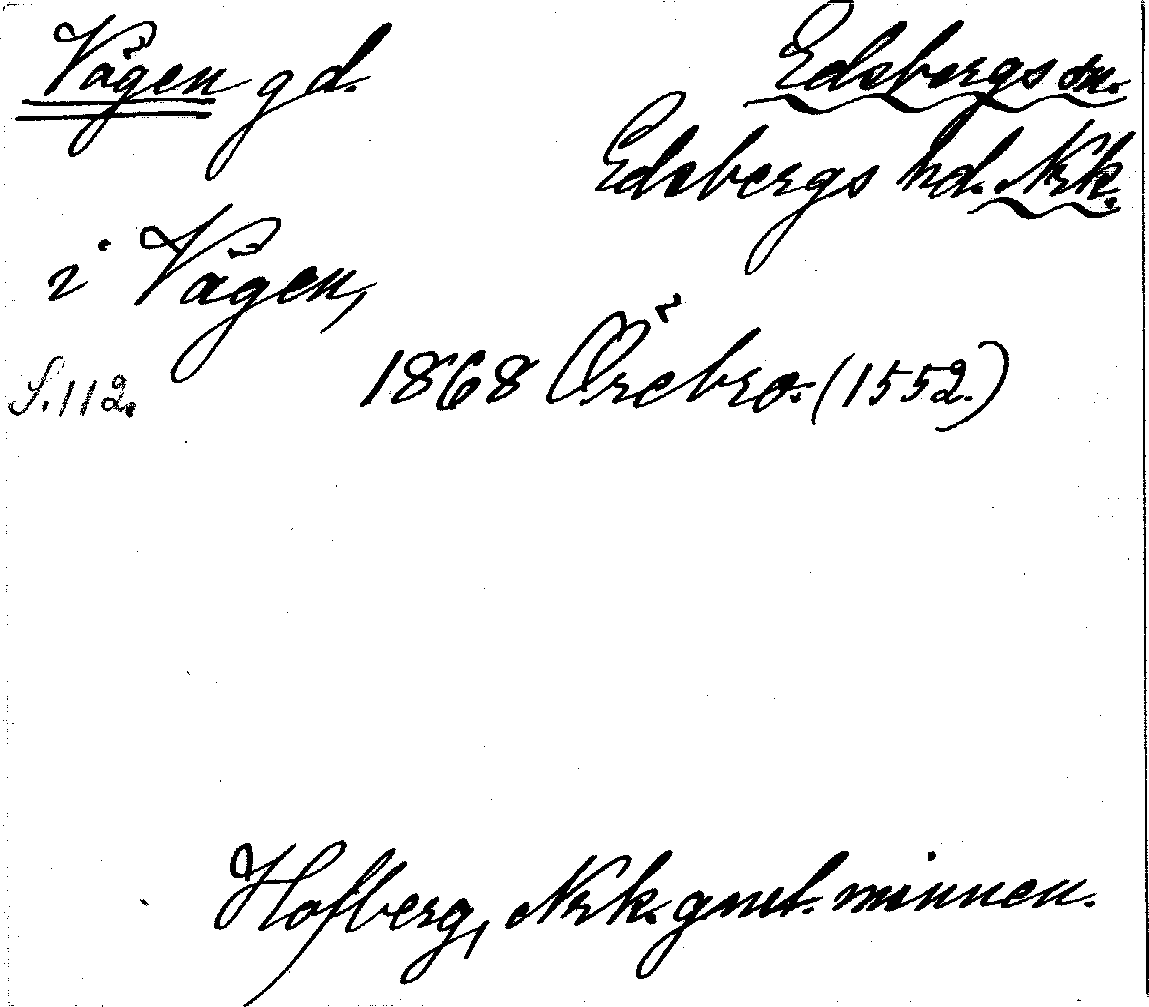 Vågen gd. Edsbergs sn.
Edsbergs hd. Nrk.
i Vågen,
S. 112. 1868 Örebro. (1552.)
Hofberg, Nrk. gml. minnen.